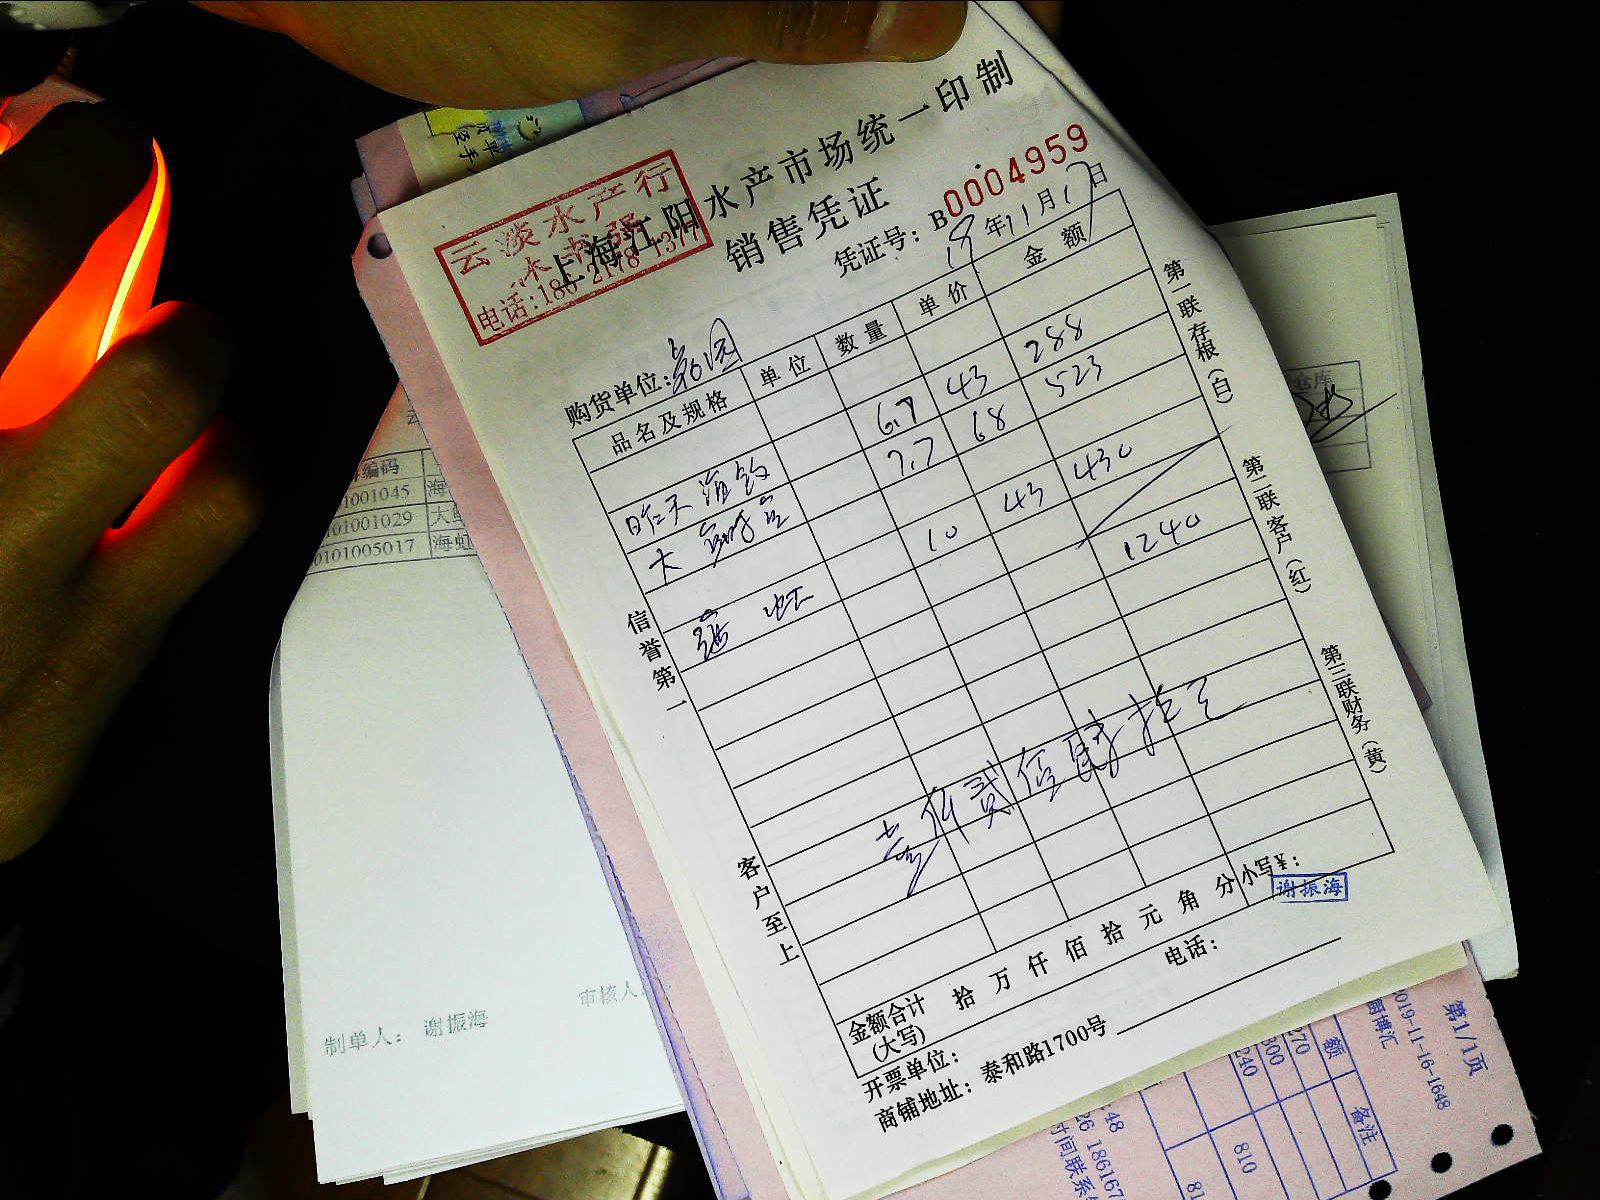 上海江阳水产市场统一印制
销售凭证
云淡水产行
电话:186-2178-1377
凭证号: B0004959
19年11月17日
购货单位:
品名及规格 单位 数量 单价 金额
昨天 6.7 43 288
大 7.7 68 523
海虹 10 43 430
1240
壹仟贰佰肆拾元
金额合计 拾 万 仟 佰 拾 元 角 分 小写¥:
(大写)
谢振海
开票单位: 电话:
商铺地址: 泰和路1700号
信誉第一
客户至上
第一联存根(白)
第二联客户(红)
第三联财务(黄)
编码
01001045 海
01001029 大
0101005017 海虹
制单人: 谢振海
审核人
仓库
第1/1页
019-11-16-1648
厨博汇
额 备注
270
300
240
810